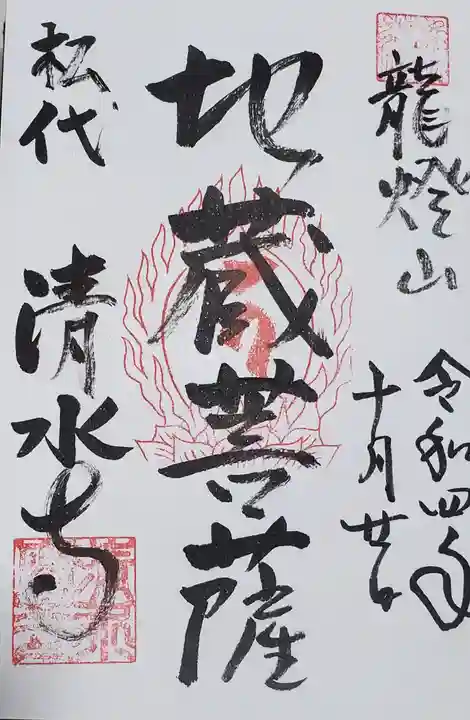 龍燈山
令和四年
十月廿日
地蔵菩薩
松代
清水寺